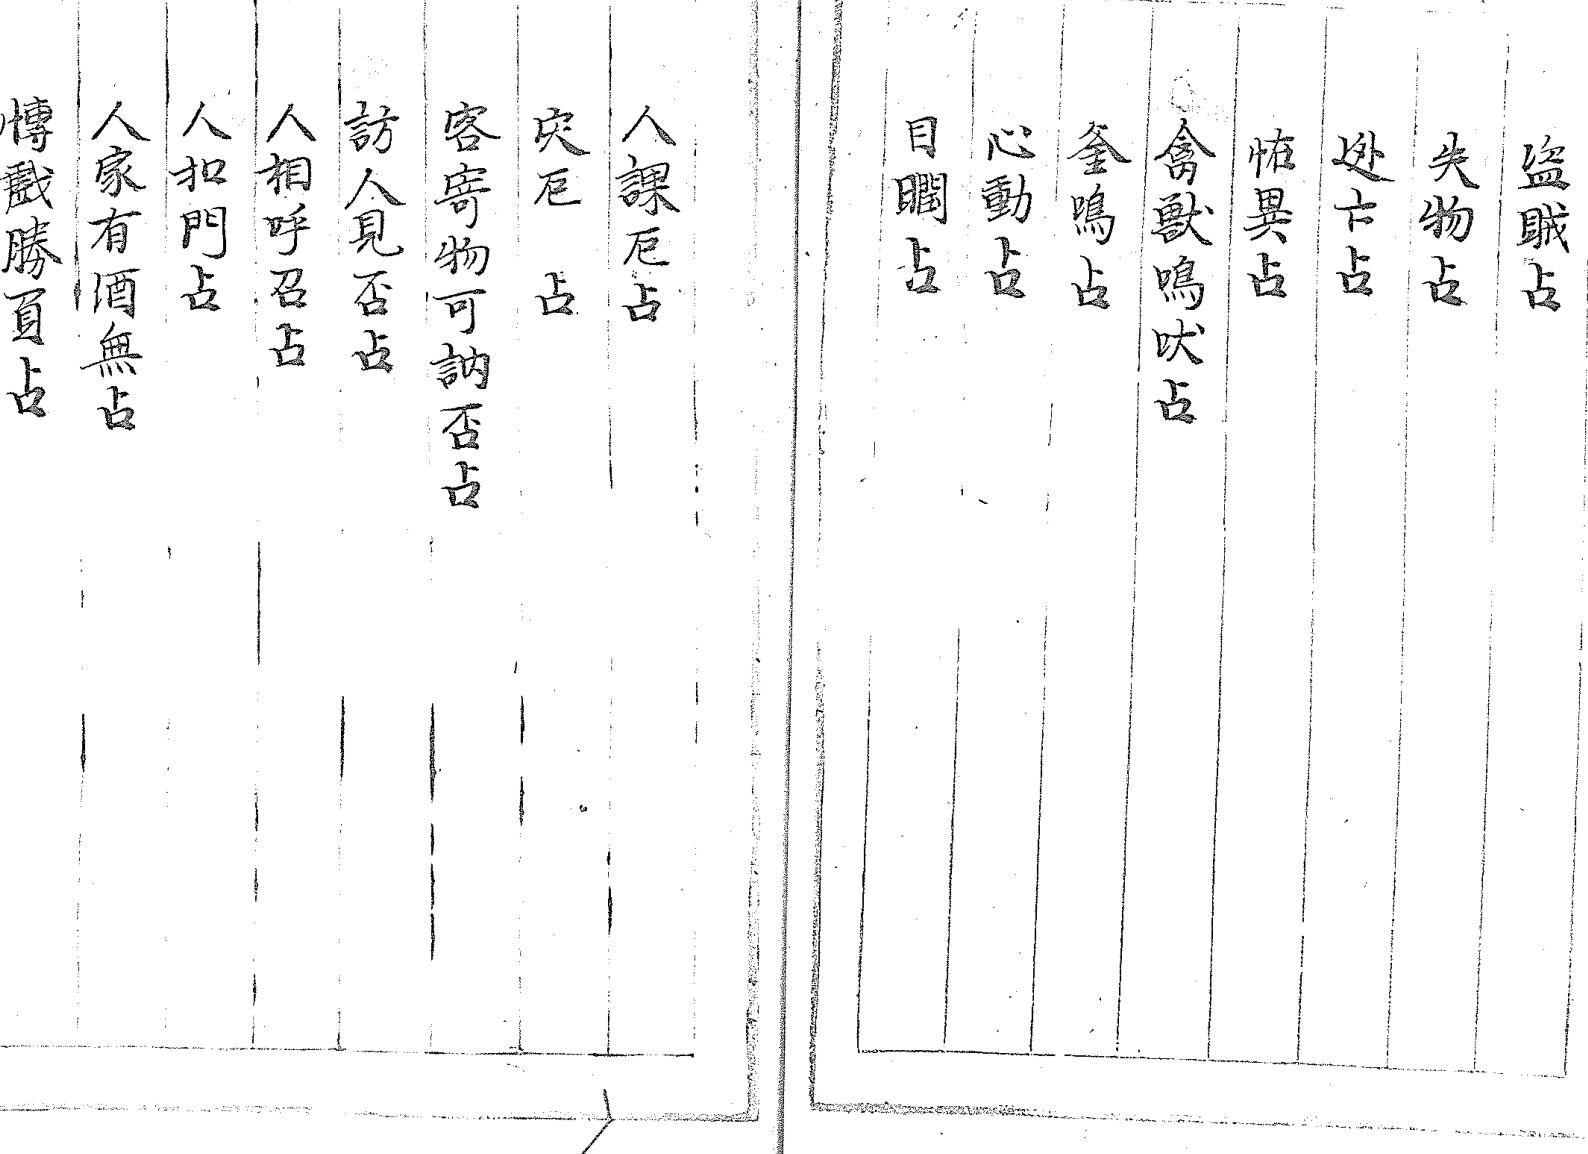 盜賊占
失物占
逃亡占
怪異占
禽獸鳴吠占
釜鳴占
心動占
目瞤占
人課厄占
灾厄占
客寄物可訥否占
訪人見否占
人相呼召占
人扣門占
人家有酒無占
慱戱勝負占